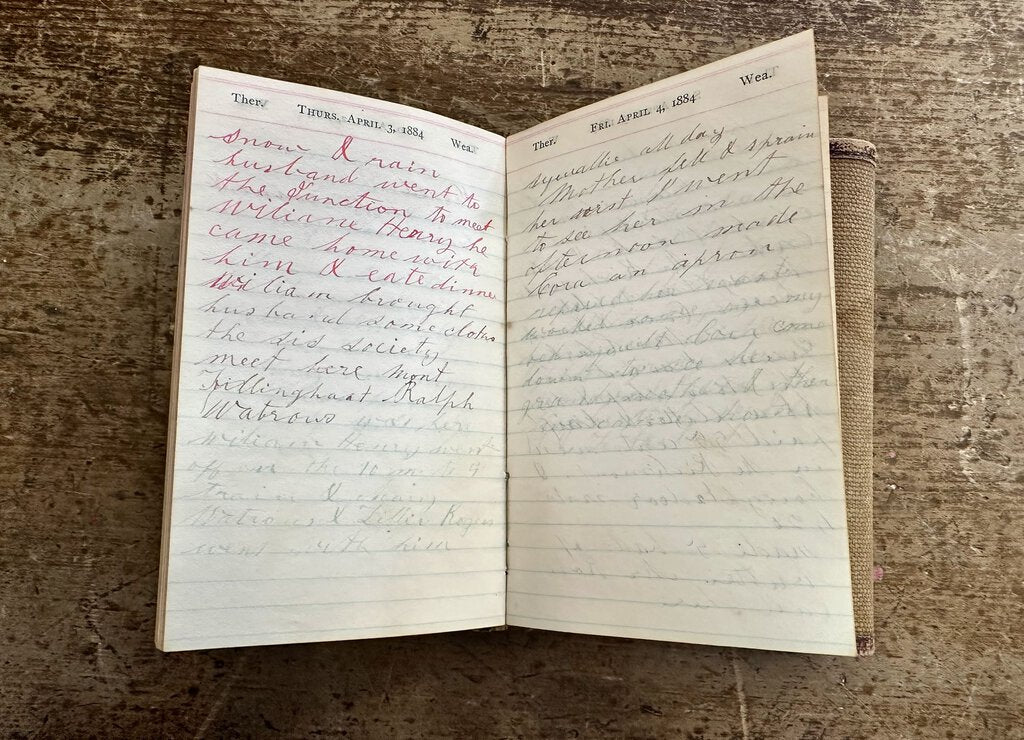 Ther.
THURS. APRIL 3, 1884
Wea.
snow & rain
husband went to
the Junction to meet
Wiliane Henry he
came home with
him & eate dinne
William brought
husband some cloths
the dis society
meet here mont
Hillinghast Ralph
Watrows was her
William Henry went
off on the 10 m to 9
train & 
Watrous & Lillie Rogers
went with him
Ther.
FRI. APRIL 4, 1884
Wea.
sqwallie all day
Mother fell & sprain
her wrist I went
to see her in the
afternoon made
Cora an apron